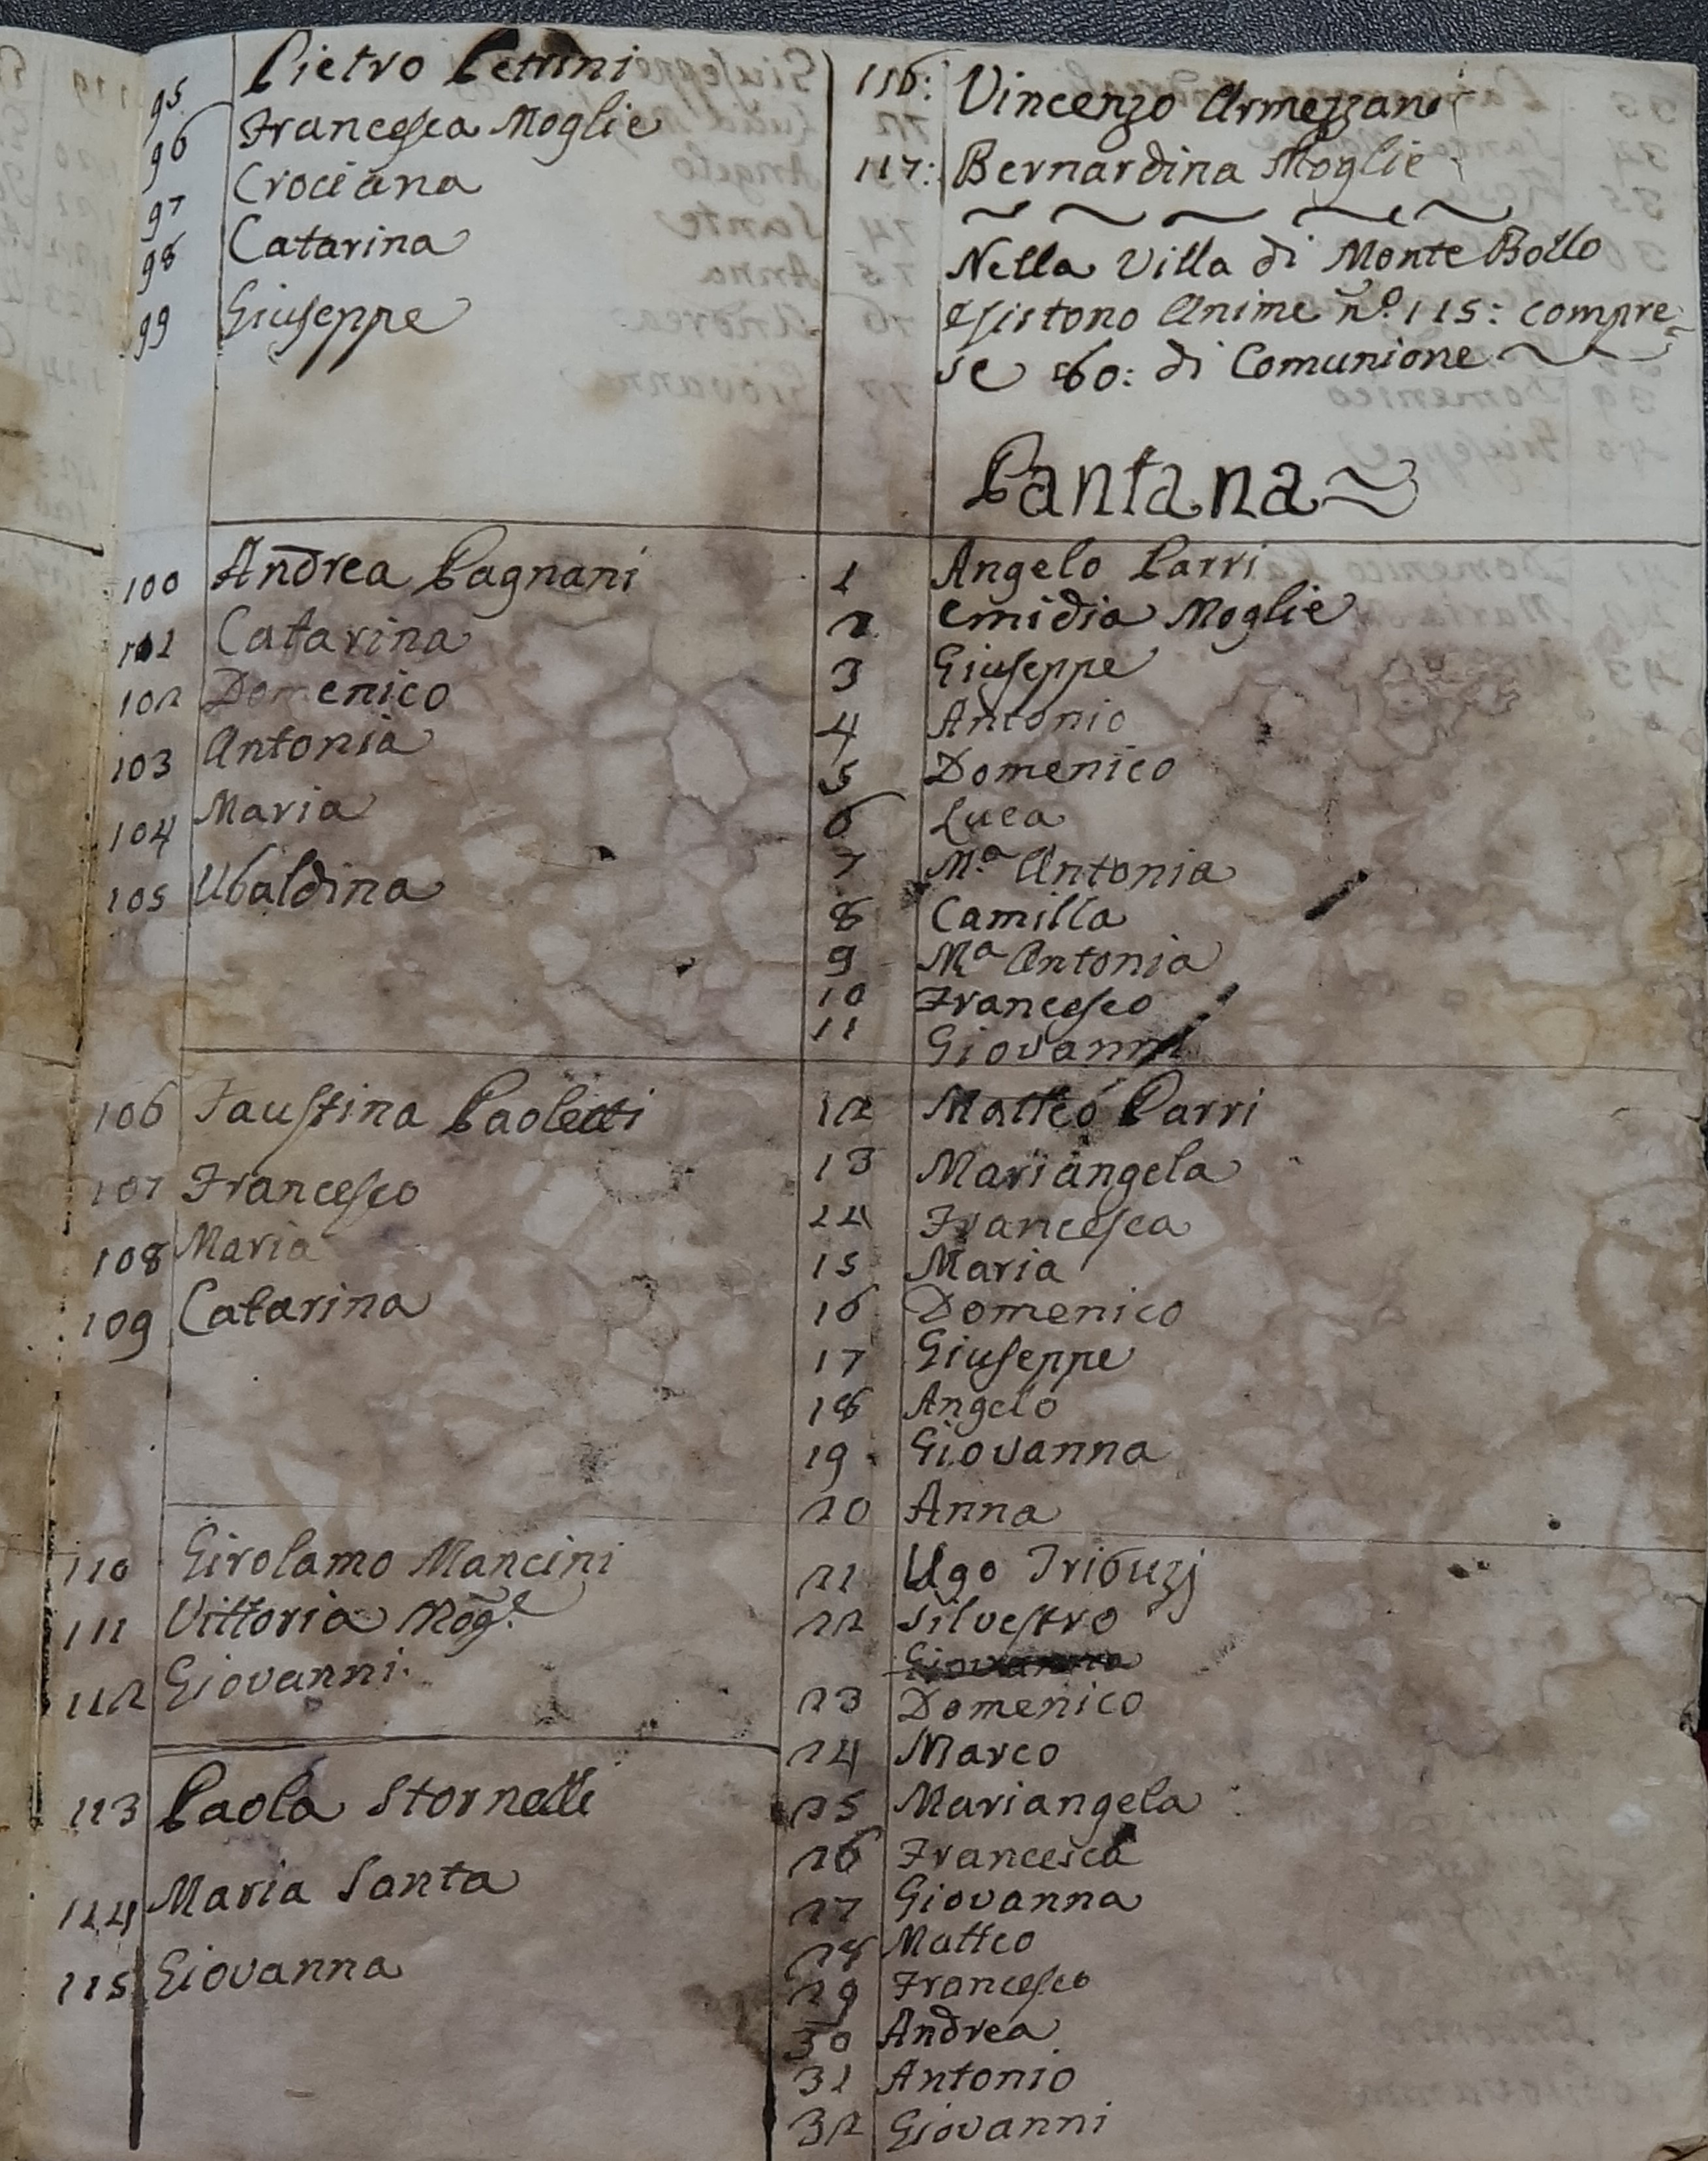 95 Pietro Petrini
96 Francesca Moglie
97 Crociana
98 Catarina
99 Giuseppe
100 Andrea Pagnani
101 Catarina
102 Domenico
103 Antonia
104 Maria
105 Ubaldina
106 Faustina Paoletti
107 Francesco
108 Maria
109 Catarina
110 Girolamo Mancini
111 Vittoria Mog.e
112 Giovanni
113 Paola Stornelli
114 Maria Santa
115 Giovanna
116: Vincenzo Armezzani
117: Bernardina Moglie
Nella Villa di Monte Bollo
esistono Anime n.º 115: compre=
se 60: di Comunione
Pantana
1 Angelo Parri
2 Emidia Moglie
3 Giuseppe
4 Antonio
5 Domenico
6 Luca
7 M.a Antonia
8 Camilla
9 M.a Antonia
10 Francesco
11 Giovanni
12 Matteo Parri
13 Mariangela
14 Francesca
15 Maria
16 Domenico
17 Giuseppe
18 Angelo
19 Giovanna
20 Anna
21 Ugo Tribuzj
22 Silvestro
23 Domenico
24 Marco
25 Mariangela
26 Francesca
27 Giovanna
28 Matteo
29 Francesco
30 Andrea
31 Antonio
32 Giovanni